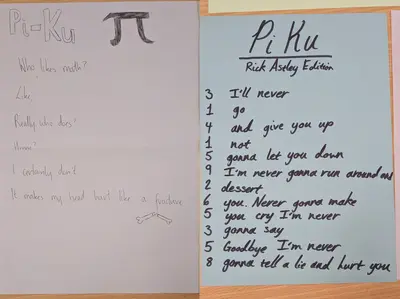 Pi-Ku π
Who likes math?
Like,
Really who does?
Hmm?
I certainly don't
It makes my head hurt like a fracture
Pi Ku
Rick Astley Edition
3 I'll never
1 go
4 and give you up
1 not
5 gonna let you down
9 I'm never gonna run around and
2 dessert
6 you. Never gonna make
5 you cry I'm never
3 gonna say
5 Goodbye I'm never
8 gonna tell a lie and hurt you